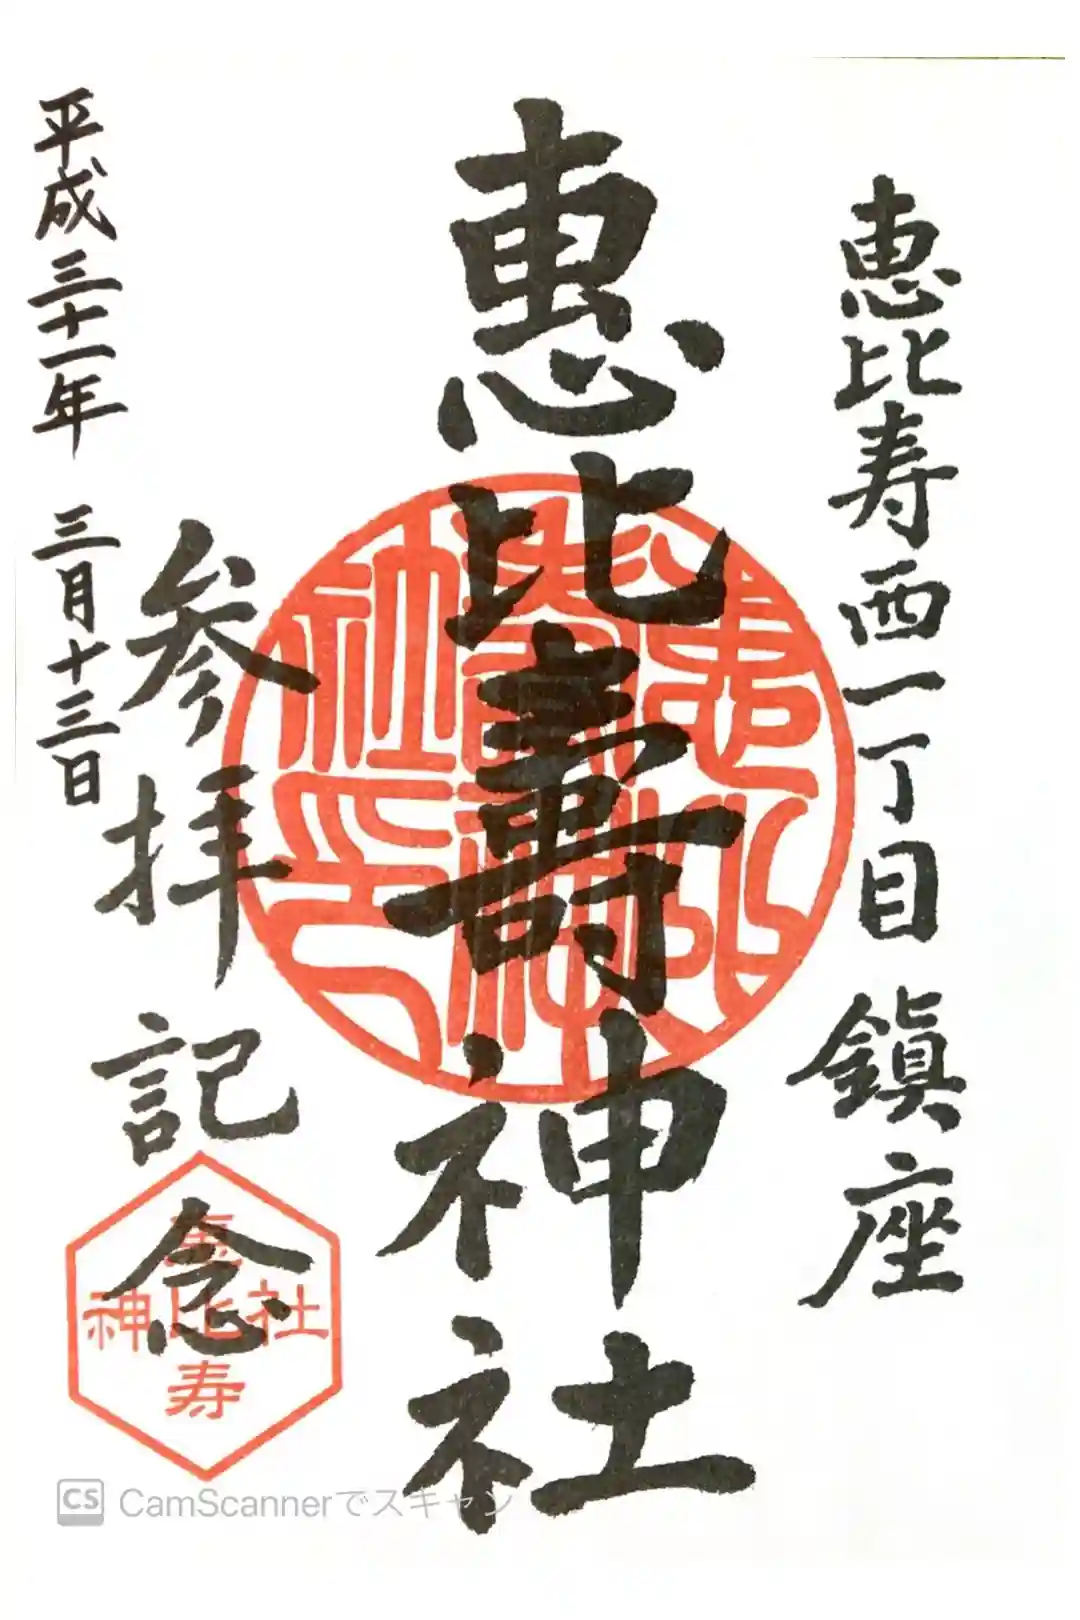 恵比寿西一丁目 鎮座
恵比壽神社
参拝記念
平成三十一年 三月十三日
恵比壽神社印
恵比寿
神社
CS CamScannerでスキャン